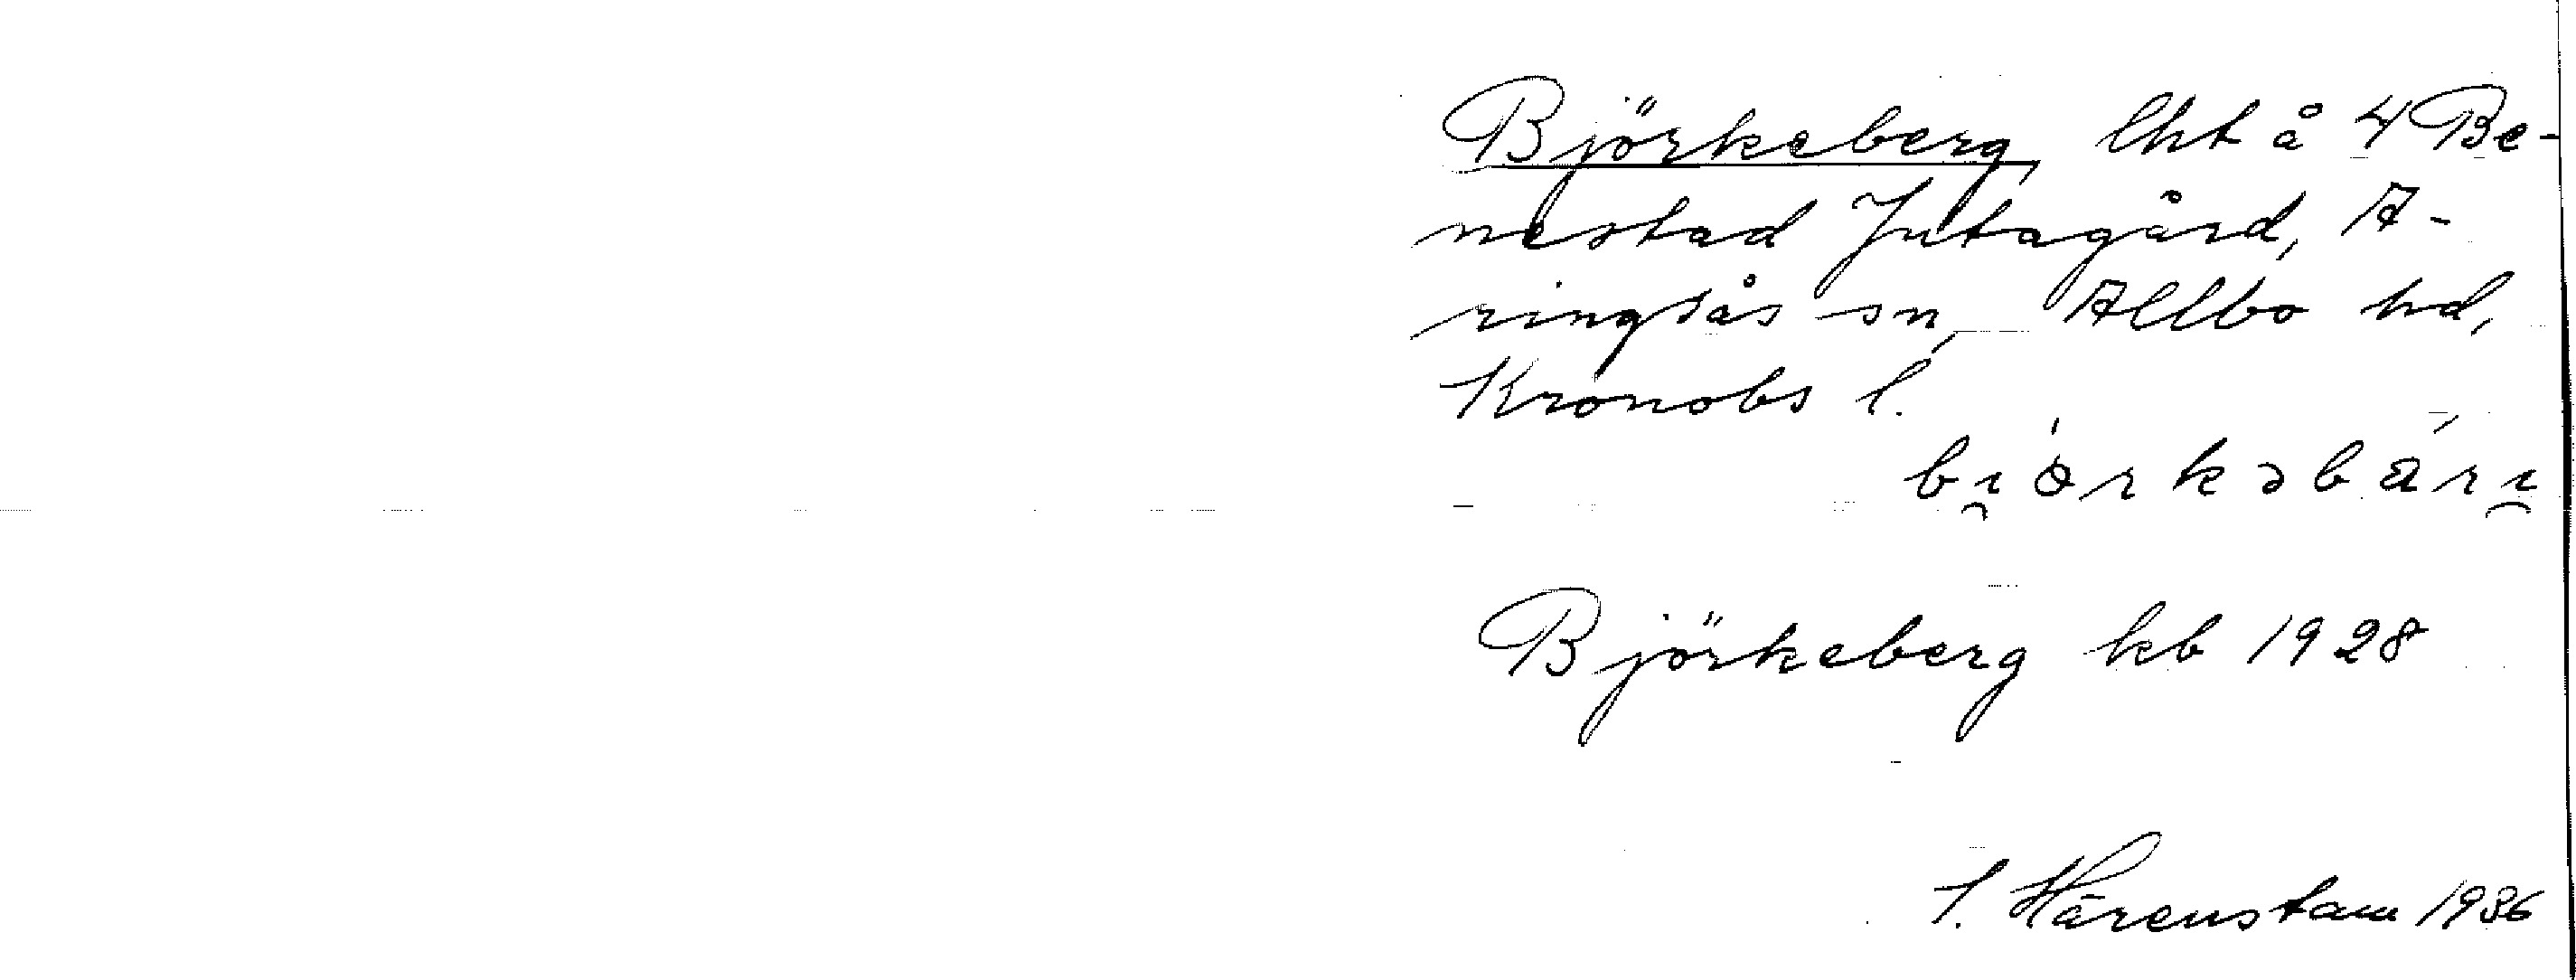 Björkeberg lht å 4 Be-
nestad Jutagård, A-
ringsås sn, Allbo hd,
Kronobs l.
Björkeberg kb 1928
S. Härenstam 1936